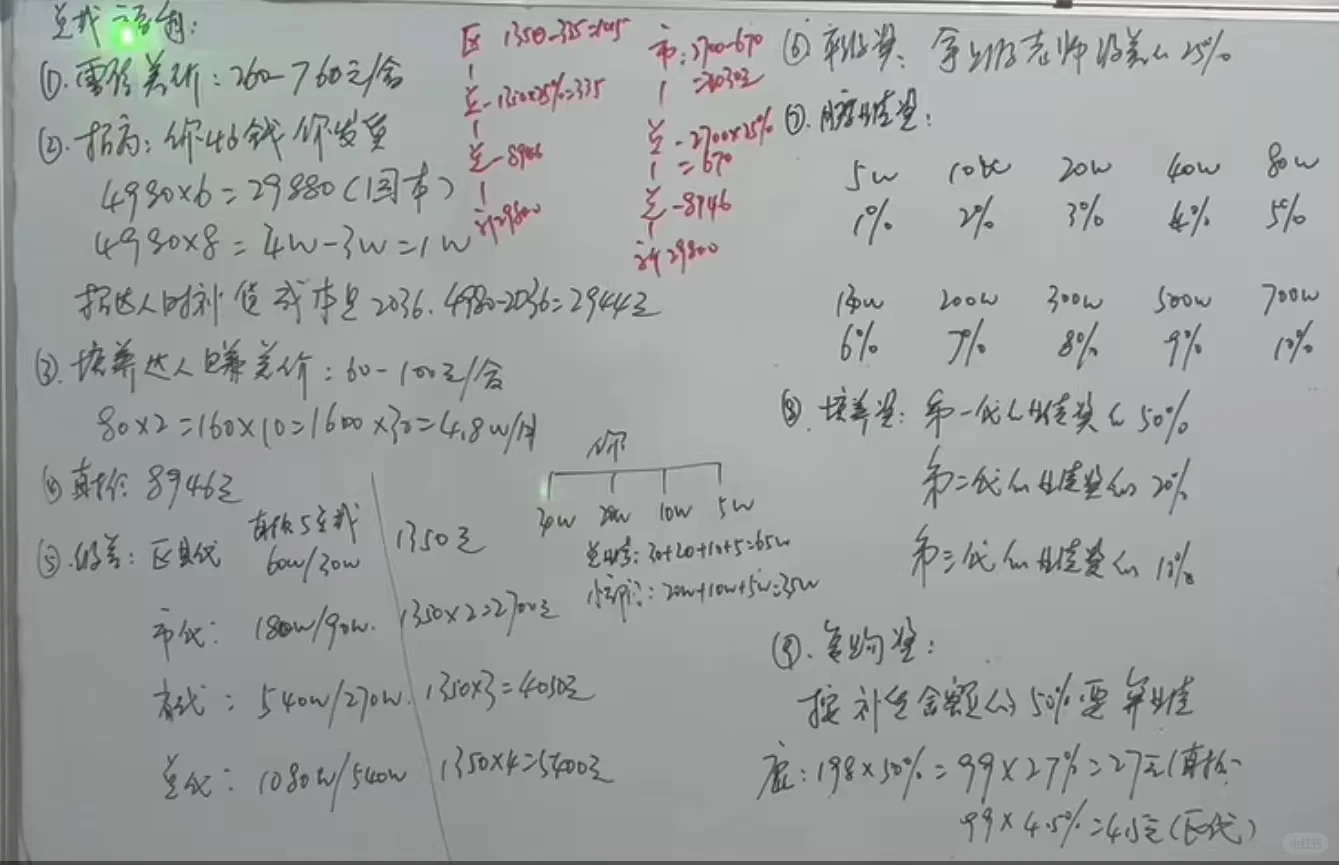 ①.零售差价：260-760元/盒
②.招商：你收钱你发货
4980×6=29880(回本)
4980×8=4w-3w=1w
招达人时补货成本是2036.4980-2036=2944元
③.培养达人赚差价：60-100元/盒
80×2=160×10=1600×30=4.8w/月
④直推 8946元
⑤.级差：区县代 60w/30w 1350元
市代：180w/90w. 1350×2=2700元
省代：540w/270w. 1350×3=4050元
总代：1080w/540w 1350×4=5400元
你
30w 20w 10w 5w
总业绩：30+20+10+5=65w
小部门：20w+10w+5w=35w
区 1350-335=1015
总-1350×25%=335
总-8946
计29800
市：2700-670
=2030元
总-2700×25%
=670
总-8946
计29800
⑥ 25%
⑦.
5w 10w 20w 40w 80w
1% 2% 3% 4% 5%
130w 200w 300w 500w 700w
6% 7% 8% 9% 10%
⑧.培养奖：第一代的业绩奖的50%
第二代的业绩奖的20%
第三代的业绩奖的10%
⑨.复购奖：
按补货金额的50%要算业绩
198×50%=99×27%=27元(直推
99×4.5%=4.5元(区代)
小红书